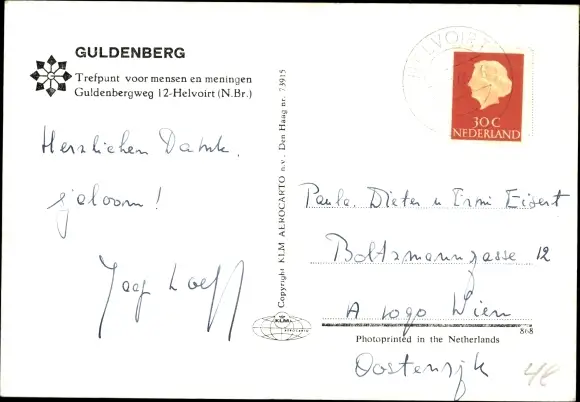 GULDENBERG
Trefpunt voor mensen en meningen
Guldenbergweg 12-Helvoirt (N.Br.)
HELVOIRT
30 C
NEDERLAND
Herzlichen Dank.
sjaloom!
Jaap
Copyright KLM AEROCARTO n.v. Den Haag nr. 73915
KLM
AEROCARTO
Paula, Dieter u Ermi Eisert
Boltzmanngasse 12
A 1090 Wien
868
Photoprinted in the Netherlands
Oostenrijk